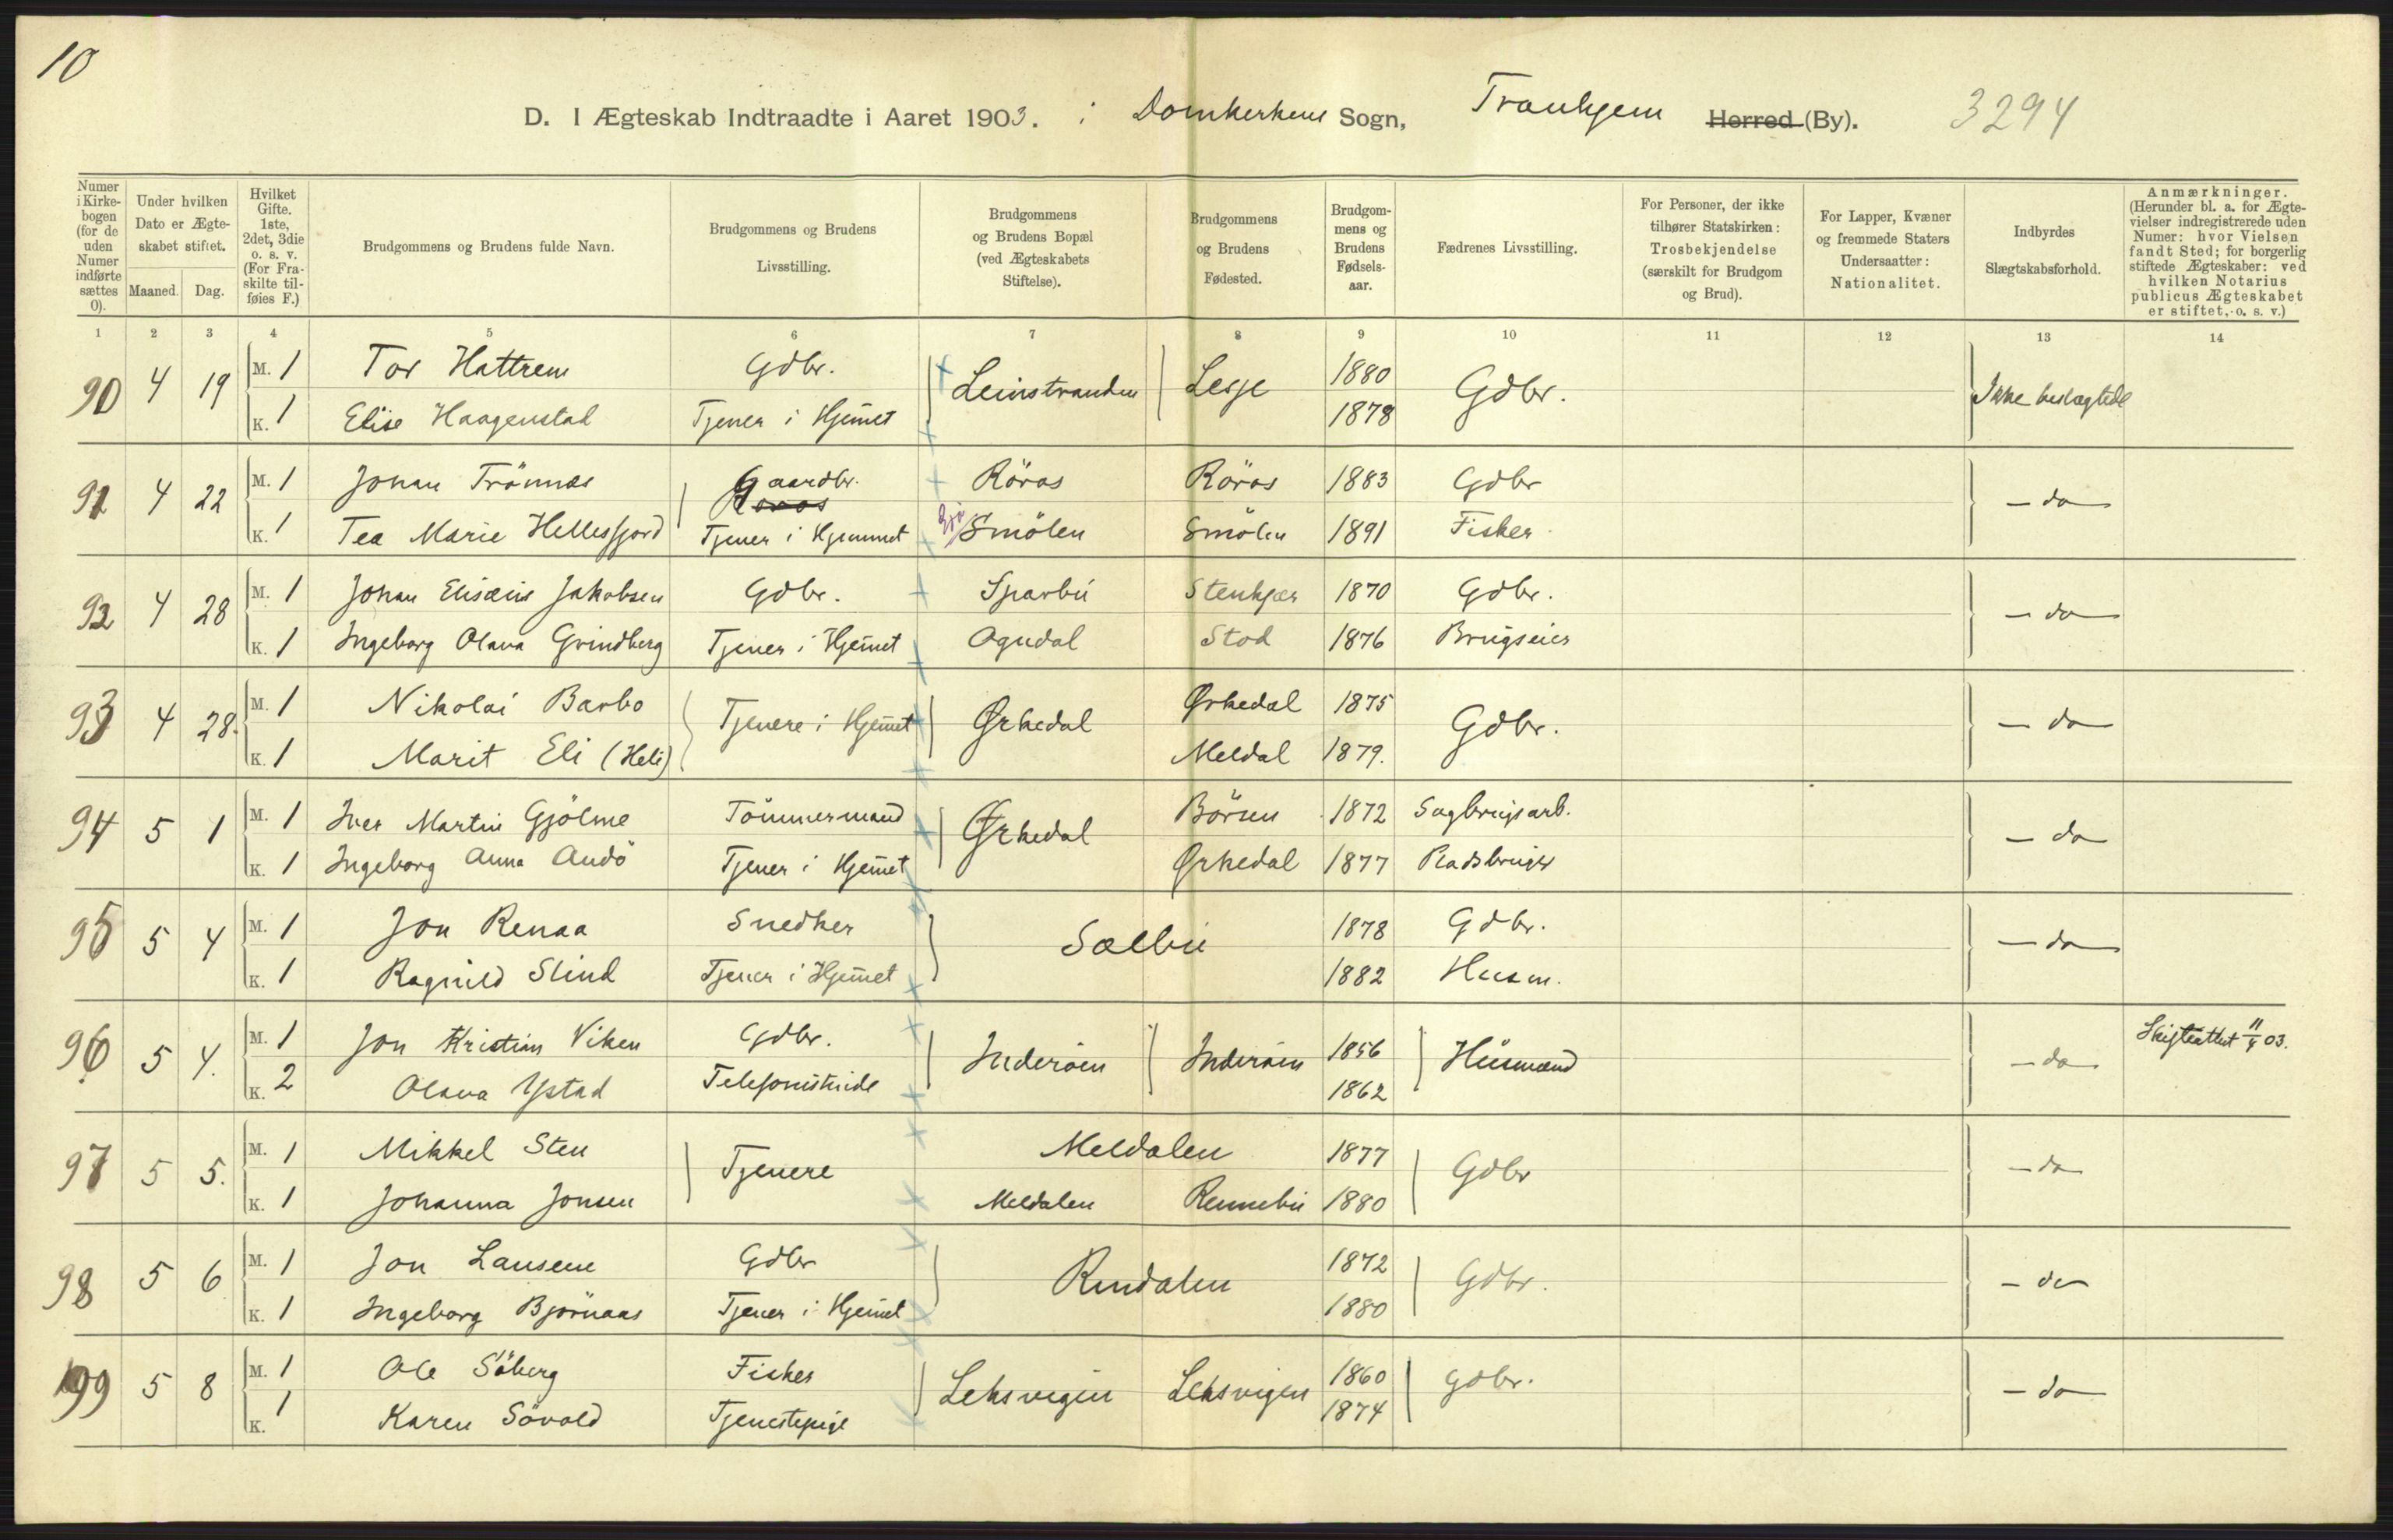 10
D. I Ægteskab Indtraadte i Aaret 1903. i Domkirkens Sogn, Tronhjem Herred (By). 3294
Numer i Kirkebogen (for de uden Numer indførte sættes 0). | Under hvilken Dato er Ægteskabet stiftet. Maaned. Dag. | Hvilket Gifte. 1ste, 2det, 3die o. s. v. (For Fraskilte tilføies F.) | Brudgommens og Brudens fulde Navn. | Brudgommens og Brudens Livsstilling. | Brudgommens og Brudens Bopæl (ved Ægteskabets Stiftelse). | Brudgommens og Brudens Fødested. | Brudgommens og Brudens Fødselsaar. | Fædrenes Livsstilling. | For Personer, der ikke tilhører Statskirken: Trosbekjendelse (særskilt for Brudgom og Brud). | For Lapper, Kvæner og fremmede Staters Undersaatter: Nationalitet. | Indbyrdes Slægtskabsforhold. | Anmærkninger. (Herunder bl. a. for Ægtevielser indregistrerede uden Numer: hvor Vielsen fandt Sted; for borgerlig stiftede Ægteskaber: ved hvilken Notarius publicus Ægteskabet er stiftet, o. s. v.)
1 2 3 4 5 6 7 8 9 10 11 12 13 14
90 4 19 M. 1 Tor Hattrem Gdbr. Leinstranden Lesje 1880 Gdbr. Ikke beslægtede
K. 1 Elise Haagenstad Tjener i Hjemet 1878
91 4 22 M. 1 Johan Trönnes Gaardbr. Röros Röros 1883 Gdbr - do -
K. 1 Tea Marie Hellesfjord Tjener i Hjemmet Smölen Smölen 1891 Fisker
92 4 28 M. 1 Johan Elisæus Jakobsen Gdbr. Sparbu Stenkjær 1870 Gdbr. - do -
K. 1 Ingeborg Olava Grindberg Tjener i Hjemet Ogndal Stod 1876 Brugseier
93 4 28. M. 1 Nikolai Barbo Tjenere i Hjemet Ørkedal Ørkedal 1875 Gdbr. - do -
K. 1 Marit Eli (Heli) Meldal 1879.
94 5 1 M. 1 Iver Martin Gjölme Tömmermand Ørkedal Börsen 1872 Sagbrugsarb. - do -
K. 1 Ingeborg Anna Andö Tjener i Hjemet Ørkedal 1877 Pladsbruger
95 5 4 M. 1 Jon Renaa Snedker Sælbu 1878 Gdbr. - do -
K. 1 Ragnild Slind Tjener i Hjemet 1882 Husm.
96 5 4. M. 1 Jon Kristian Viken Gdbr. Inderöen Inderöen 1856 Husmænd - do - Skifteattest 11/4 03.
K. 2 Olava Ystad Telefonistinde 1862
97 5 5. M. 1 Mikkel Sten Tjenere Meldalen 1877 Gdbr - do -
K. 1 Johanna Jonsen Meldalen Rennebu 1880
98 5 6 M. 1 Jon Lansem Gdbr Rindalen 1872 Gdbr. - do -
K. 1 Ingeborg Björnaas Tjener i Hjemet 1880
99 5 8 M. 1 Ole Söberg Fisker Leksvigen Leksvigen 1860 Gdbr. - do -
K. 1 Karen Sövold Tjenestepige 1874